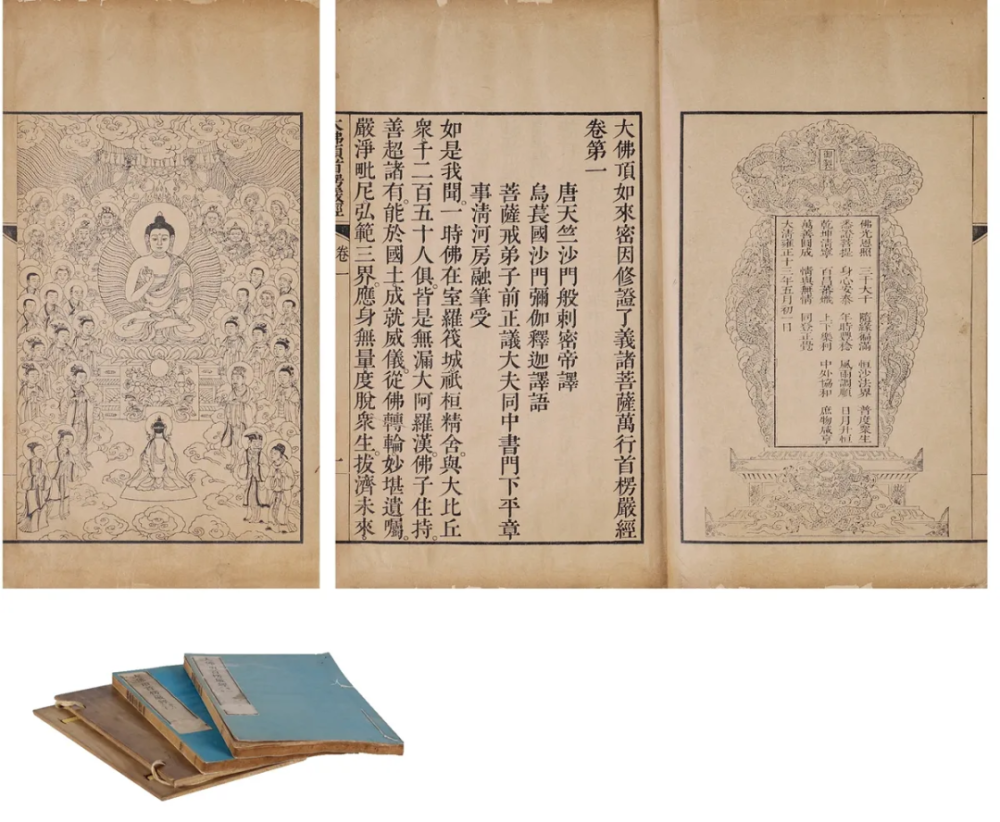 御製
佛光恩照 三千大千 隨緣徧滿 恒沙法界 普度衆生
悉證菩提 身心安泰 年時豐稔 風雨調順 日月升恒
乾坤清寧 百昌蕃熾 上下樂利 中外協和 庶物咸亨
萬善圓成 情與無情 同登正覺
大清雍正十三年五月初一日
大佛頂如來密因修證了義諸菩薩萬行首楞嚴經
卷第一
唐天竺沙門般剌密帝譯
烏萇國沙門彌伽釋迦譯語
菩薩戒弟子前正議大夫同中書門下平章
事淸河房融筆受
如是我聞。一時佛在室羅筏城祇桓精舍。與大比丘
衆千二百五十人俱。皆是無漏大阿羅漢佛子住持。
善超諸有。能於國土成就威儀從佛轉輪妙堪遺囑。
嚴淨毗尼弘範三界。應身無量度脫衆生。拔濟未來
大佛頂首楞嚴經 卷一 一